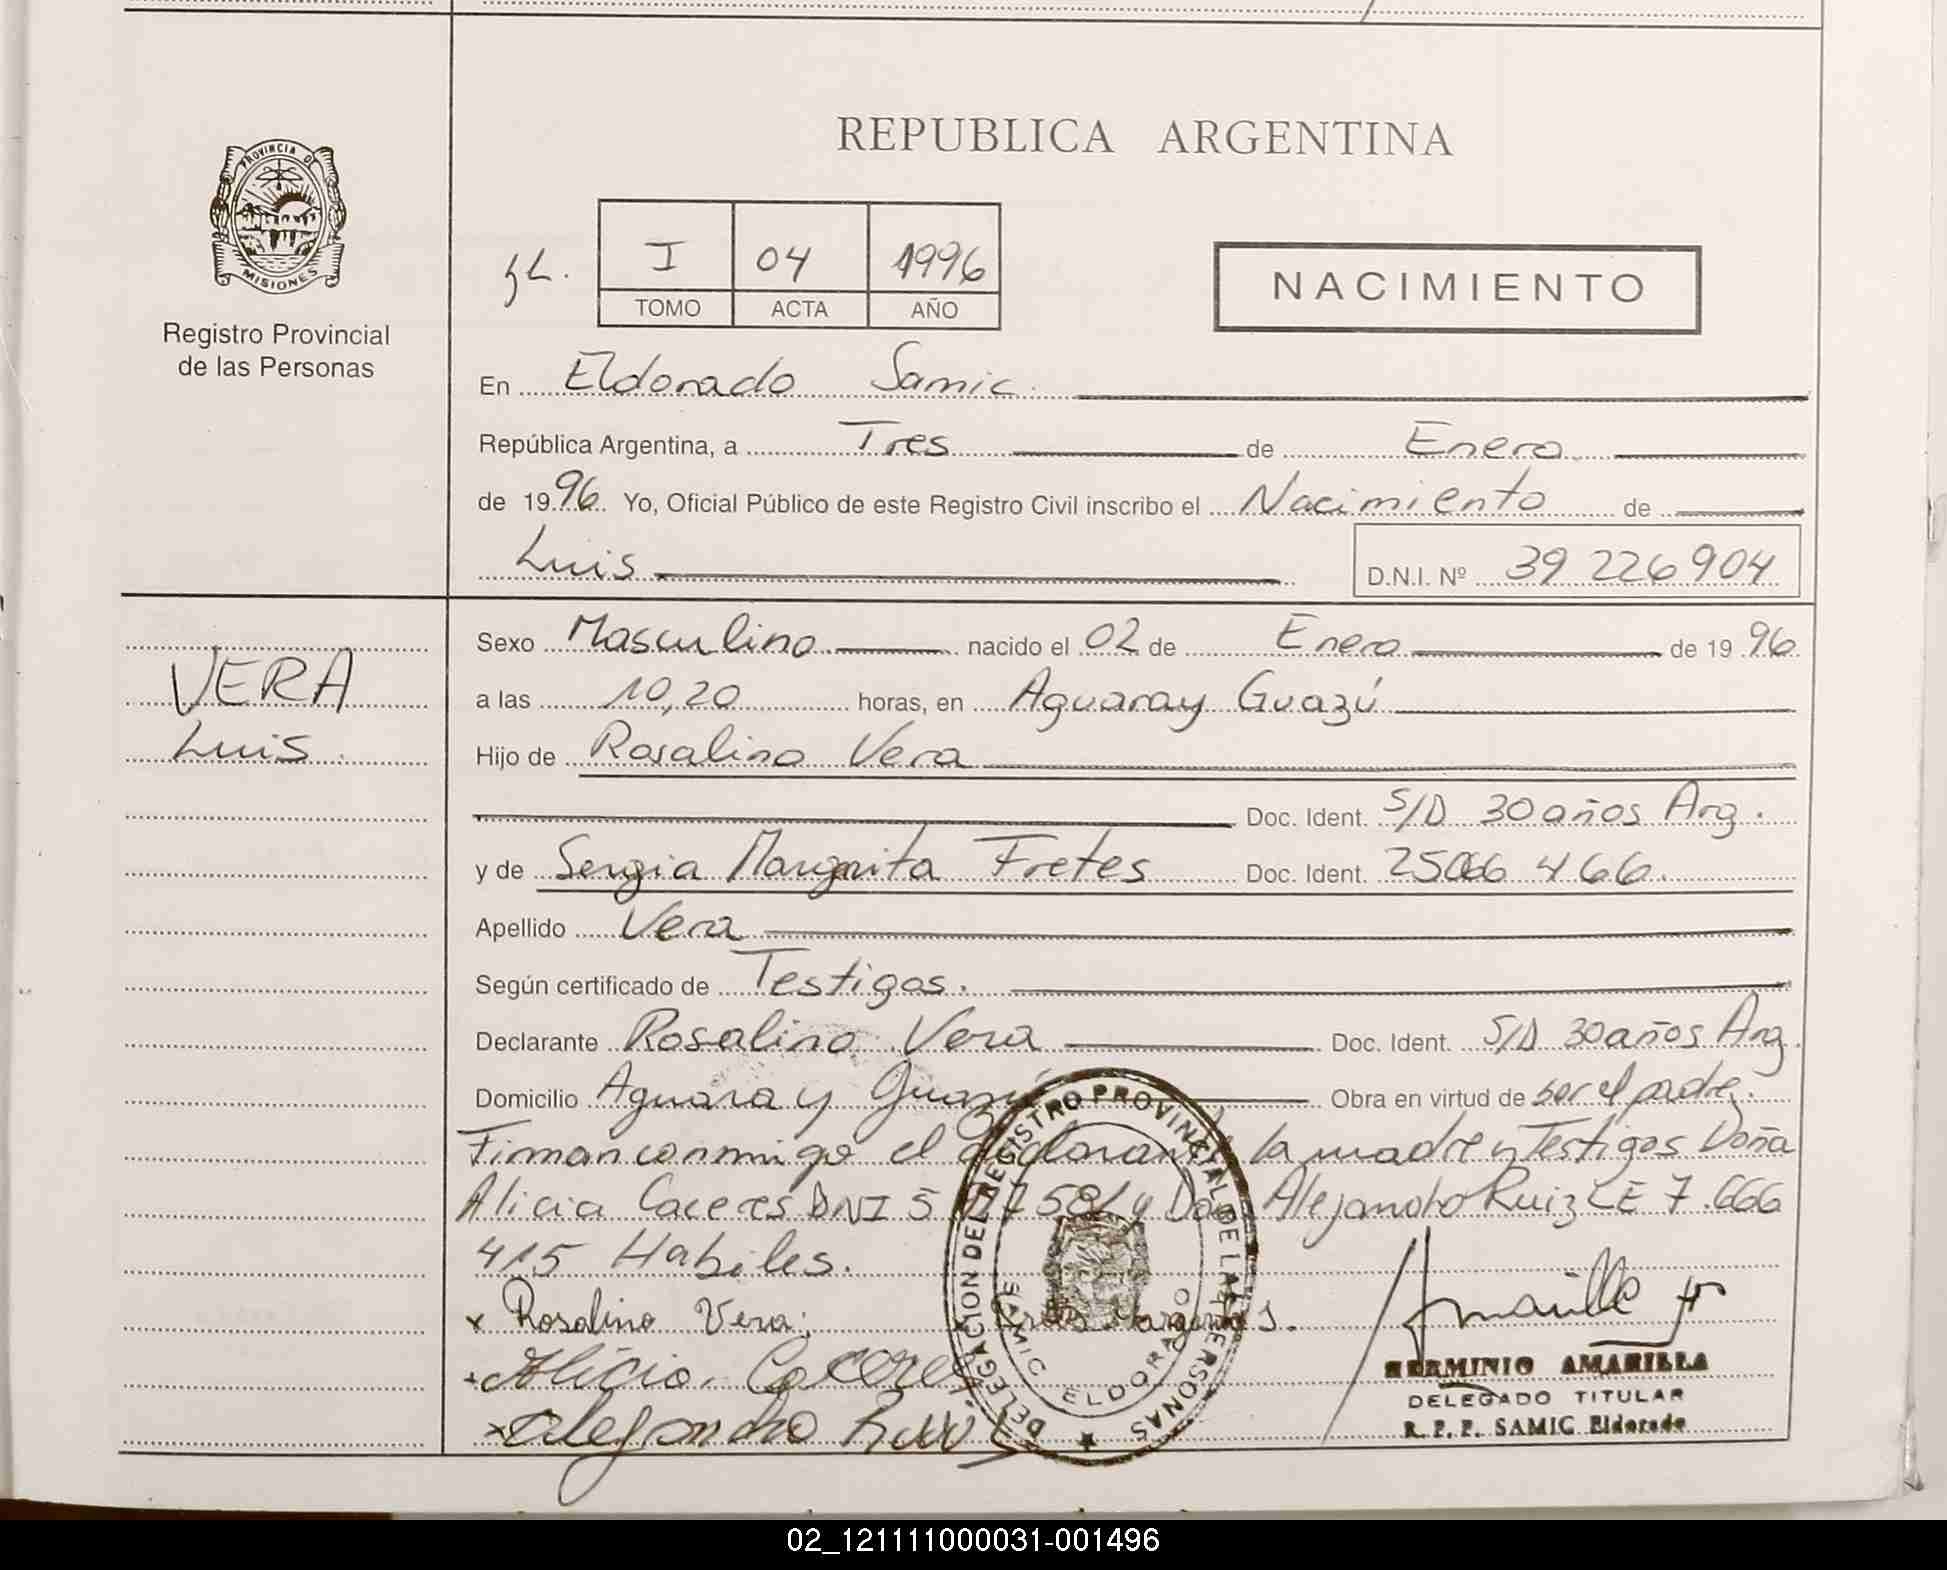 REPUBLICA ARGENTINA
PROVINCIA DE
MISIONES
Registro Provincial
de las Personas
I 04 1996
TOMO ACTA AÑO
NACIMIENTO
En Eldorado Samic.
República Argentina, a Tres de Enero
de 1996. Yo, Oficial Público de este Registro Civil inscribo el Nacimiento de
Luis D.N.I. Nº 39 226 904
VERA
Luis.
Sexo Masculino nacido el 02 de Enero de 1996
a las 10,20 horas, en Aguaray Guazú
Hijo de Rosalino Vera
Doc. Ident. S/D 30 años Arg.
y de Sergia Margarita Fretes Doc. Ident. 25066 466.
Apellido Vera
Según certificado de Testigos.
Declarante Rosalino Vera Doc. Ident. S/D 30 años Arg.
Domicilio Aguaray Guazú Obra en virtud de ser el padre.
Firman conmigo el declarante, la madre y Testigos Doña
Alicia Caceres DNI 5 y Don Alejandro Ruiz LE 7.666
415 Habiles.
x Rosalino Vera.
Alicia. Caceres
x Alejandro Ruiz
DELEGACION DEL REGISTRO PROVINCIAL DE LAS PERSONAS
SAMIC ELDORADO
Amarilla H
HERMINIO AMARILLA
DELEGADO TITULAR
R. P. P. SAMIC Eldorado
02_121111000031-001496